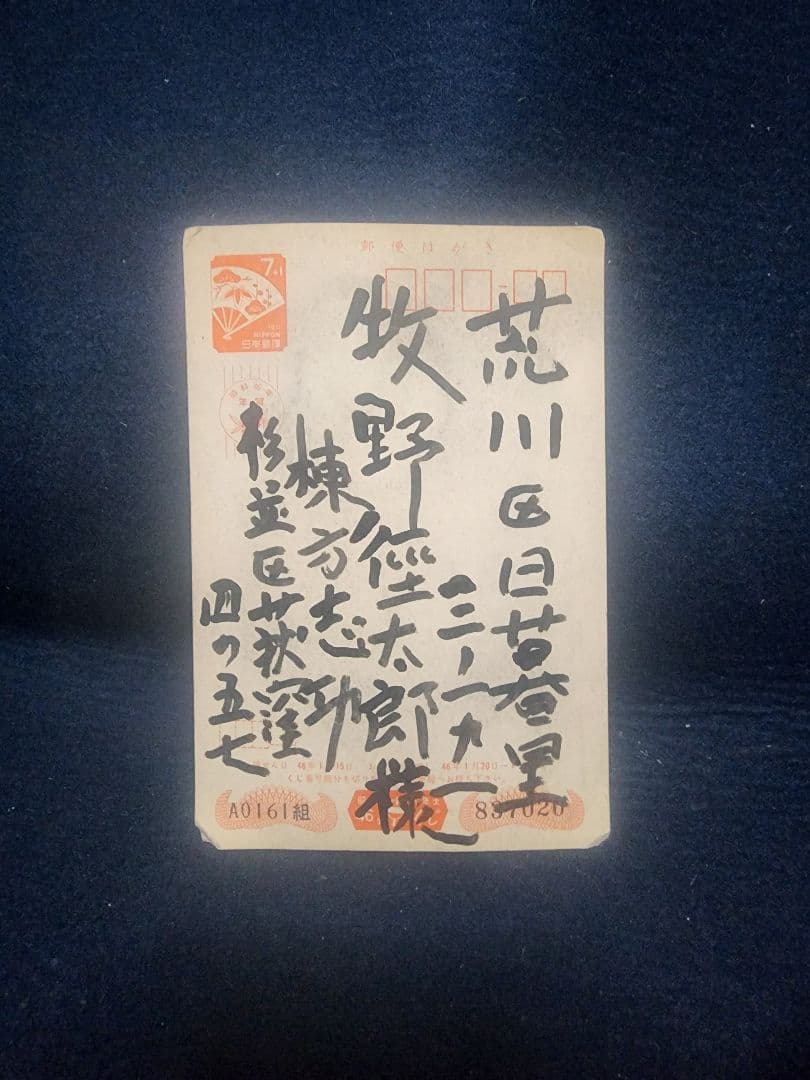 郵便はがき
7+1
NIPPON
日本郵便
荒川区日暮里
牧野径太郎様
棟方志功
杉並区荻窪
四ノ五七
46年1月15日
46年1月20日
A0161組
837020